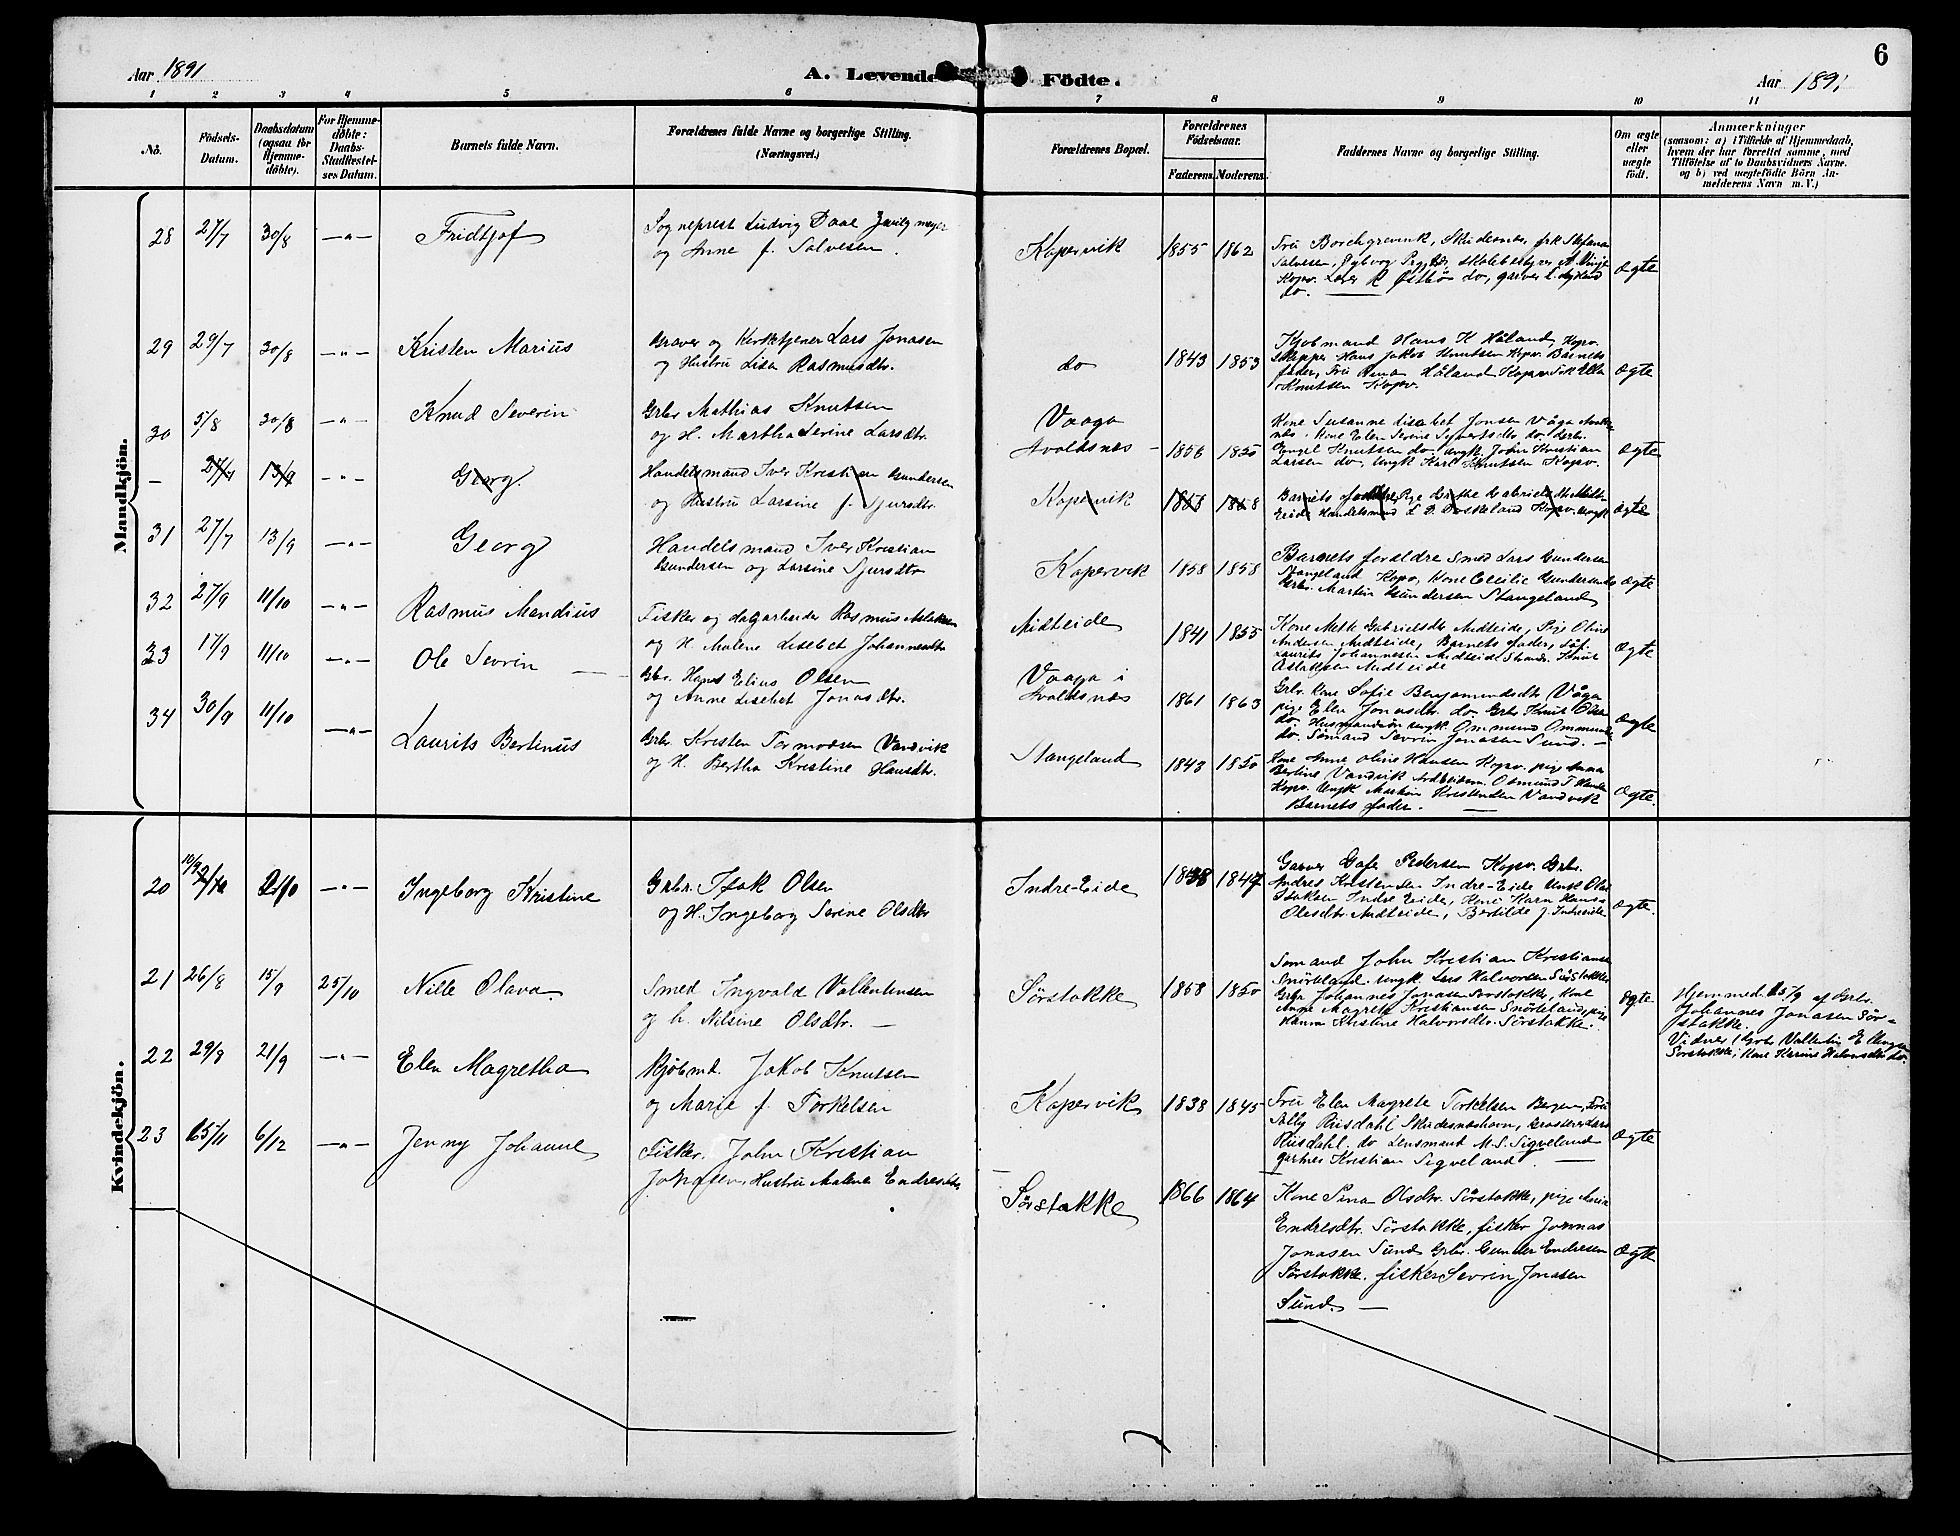 6
Aar 1891
A. Levende Födte.
Aar 1891
1 2 3 4 5 6 7 8 9 10 11
No. Födsels-Datum. Daabsdatum (ogsaa for Hjemme-döbte). For Hjemme-döbte: Daabs-Stadfæstel-ses Datum. Barnets fulde Navn. Forældrenes fulde Navne og borgerlige Stilling. (Næringsvei.) Forældrenes Bopæl. Forældrenes Födselsaar. Faderens. Moderens. Faddernes Navne og borgerlige Stilling. Om ægte eller uægte födt. Anmærkninger
(saasom: a) i Tilfælde af Hjemmedaab, hvem der har forrettet samme, med Tilföielse af to Daabsvidners Navne, og b) ved uægtefödte Börn An-melderens Navn m. V.)
Mandkjön.
28 27/7 30/8 —"— Fridtjof
Sogneprest Ludvig Daae Zwilgmeyer
og Anne f. Salvesen.
Kopervik 1855 1862
Fru Borchgrevink, Skudesnes, frk Stefana
Salvesen,
Kopv. Lærer R Østbö do, garver
do.
ægte
29 29/7 30/8 —"— Kristen Marius
Graver og Kirketjener Lars Jonasen
og Hustru Lisa Rasmusdtr.
do 1843 1853
Kjöbmand Hans K Håland, Kopv.
Skipper Hans Jakob Knutsen Kopv. Barnets
fader, Fru Håland Kopv
Knutsen Kopv.
ægte
30 5/8 30/8 —"— Knud Severin
Grbr Mathias Knutsen
og H. Martha Serine Larsdtr.
Vaaga
Avoldsnes — 1856 1850
Kone Susanne Lisebet Jonsen Våga
nes. Kone Elen Serine do. Grbr.
Engel Knutsen do ungk. John Kristian
Larsen do, ungk Karl Knutsen Kopv.
ægte
— 27/7 13/9 —"— Georg.
Handelsmand Iver Kristian Gundersen
og Hustru Larsine f. Sjursdtr.
Kopervik 1853 1858
Barnets Pige
Eide Handelsmand Kopv. ungk
ægte
31 27/7 13/9 —"— Georg
Handelsmand Iver Kristian
Gundersen og Larsine Sjursdtr
Kopervik 1858 1858
Barnets foraldre Smed Lars Gundersen
Stangeland Kopv, Kone Cecilie Gundersen do
Grbr. Martin Gundersen Stangeland
ægte
32 27/9 11/10 —"— Rasmus Mandius
Fisker og dagarbeider Rasmus Aslaksen
og H. Malene Lisebet Johannesdtr
Midteide 1841 1855
Kone Mette Gabrielsdtr Midteide, Pige Oline
Andersen Midteide, Barnets fader,
Laurits Johannessen Midteide Knut
Aslaksen Midteide
ægte
33 17/9 11/10 —"— Ole Sevrin —
Gbr. Hans Elias Olsen
og Anne Lisebet Jonasdtr.
Vaaga i
Avaldsnes 1861 1863
Grbr. Kone Sofie Benjaminsdtr Våga
pige Elen Jonasdtr. do. Grbr Knut Olsen
do. Husmandssön ungk Ommund Ommunds
do. Sömand Sevrin Jonasen Sund. —
ægte
34 30/9 11/10 —"— Laurits Bertinus
Grbr. Kristen Tormodsen Vandvik
og H. Bertha Kristine Hansdtr.
Stangeland 1843 1850
Kone Anne Oline Hansen Kopv. pige Anna
Bertine Vandvik Osmund T Hansen
Kopv. Ungk Martin Kristensen Vandvik
Barnets fader. —
ægte.
Kvindekjön.
20 10/9 —"— Ingeborg Kristine
Grbr. Isak Olsen
og H. Ingeborg Serine Olsdtr
Indre-Eide 1838 1847
Garver Pedersen Kopv. Grbr.
Andres Kristensen Indre-Eide Ungk Olai
Isaksen Indre Eide, Kone Karn Hans
Olesdtr. Midteide, Bertilde f. Indreeide
ægte.
21 26/8 15/9 25/10 Nille Olava.
Smed Ingvald Vallentinsen
og h. Nilsine Olsdtr. —
Sörstokke 1858 1850
Sömand John Kristian Kristiansen
Snörteland. Ungk. Lars Halvorsen Sörstokke
Grbr Johannes Jonasen Sörstokke, Kone
Anne Magrete Kristiansen Snörteland, pige
Hanna Kristine Halvorsdtr. Sörstokke.
ægte
Hjemmed. 15/9 af Grbr.
Johannes Jonasen Sör=
stokke.
Vidner: Grbr Vallentin
Sörstokke, Kone Karine Halvorsdtr do.
22 29/8 21/9 —"— Elen Magretha
Kjöbmd. Jakob Knutsen
og Marie f. Torkelsen
Kopervik 1838 1845
Fru Elen Magrete Torkelsen Bergen, Fru
Ally Risdahl Skudesneshavn,
Risdahl. do Lensmand M. S. Sigveland
gartner Kristian Sigveland. —
ægte
23 15/11 6/12 —"— Jenny Johanne
Fisker. John Kristian
Jonasen, Hustru Malene Endresdtr.
Sörstokke 1866 1864
Kone Sina Olsdtr. Sörstokke, pige Anna
Endresdtr. Sörstokke, fisker Jonnas
Jonasen Sund Grbr. Gunder Endresen
Sörstokke. fisker Sevrin Jonasen
Sund. —
ægte